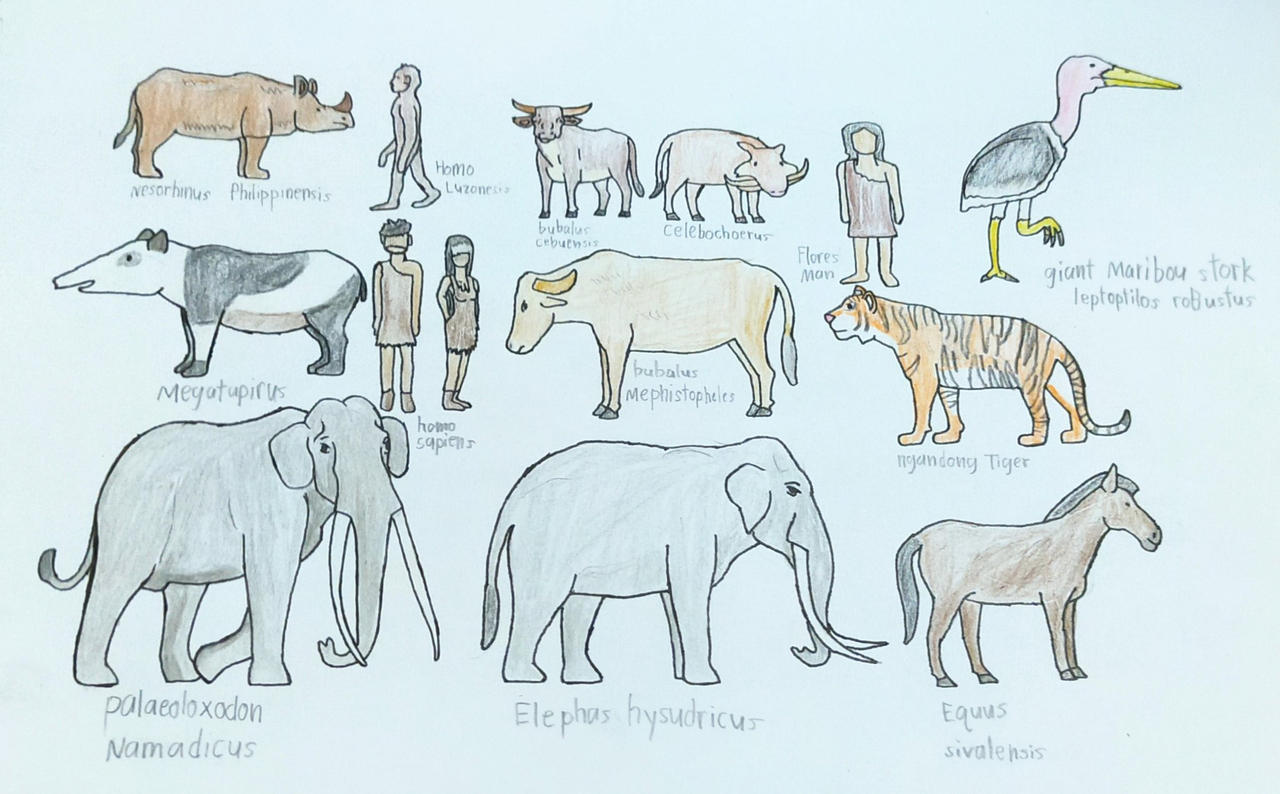 Nesorhinus Philippinensis
Homo
Luzonesis
bubalus
cebuensis
Celebochoerus
Flores
Man
giant Maribou stork
leptoptilos roBustus
Megatapirus
homo
sapiens
bubalus
Mephistopheles
ngandong Tiger
palaeoloxodon
Namadicus
Elephas hysudricus
Equus
sivalensis